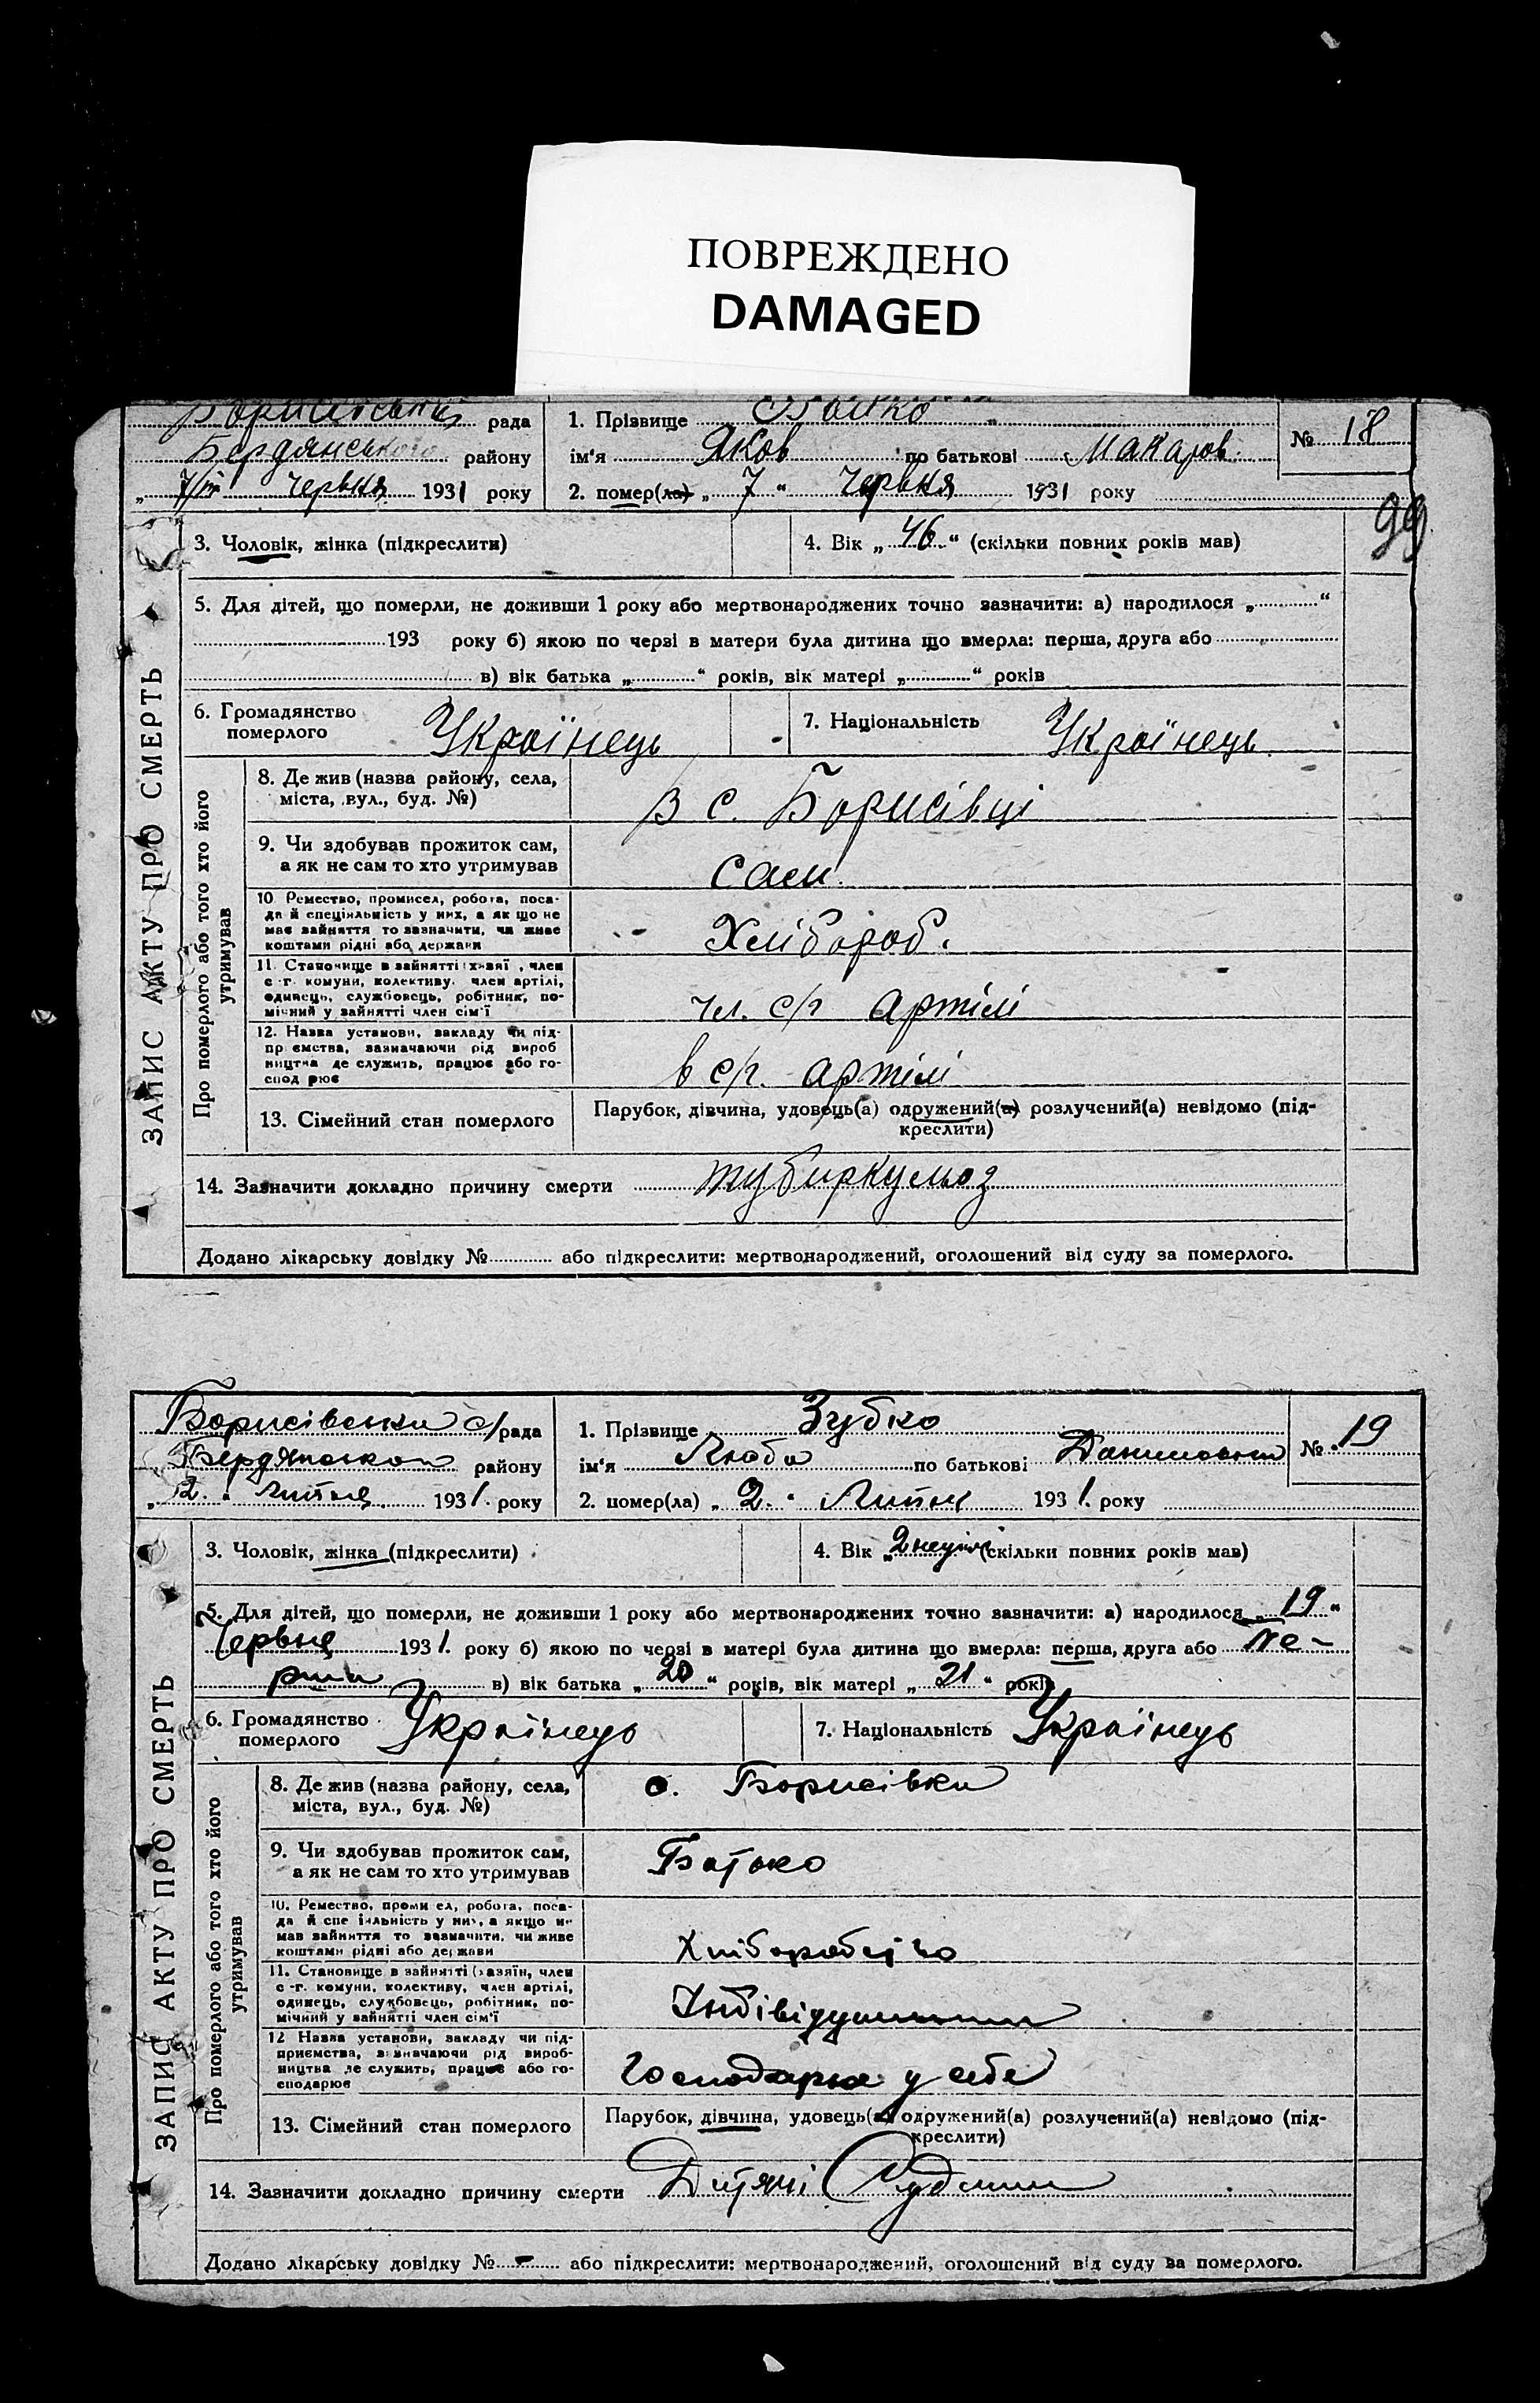 ПОВРЕЖДЕНО
DAMAGED
рада
1. Прізвище
№ 18
Бердянського району
ім'я Яков по батькові Макаров.
„ 7/VI червня 1931 року
2. помер(ла) „ 7 “ червня 1931 року
99
3. Чоловік, жінка (підкреслити)
4. Вік „ 46 “ (скільки повних років мав)
5. Для дітей, що померли, не доживши 1 року або мертвонароджених точно зазначити: а) народилося „ “
193 року б) якою по черзі в матери була дитина що вмерла: перша, друга або
в) вік батька „ “ років, вік матері „ “ років
6. Громадянство померлого Українець
7. Національність Українець.
ЗАПИС АКТУ ПРО СМЕРТЬ
Про померлого або того хто його утримував
8. Де жив (назва району, села,
міста, вул., буд. №)
в с. Борисівці
9. Чи здобував прожиток сам,
а як не сам то хто утримував
сам.
10. Ремество, промисел, робота, поса-
да й спеціяльність у них, а як що не
має зайняття то зазначити, чи живе
коштами рідні або держави
Хлібороб.
11. Становище в зайнятті (хазяї , член
с.-г. комуни, колективу, член артілі,
одинець, службовець, робітник, по-
мічний у зайнятті член сім'ї
чл. с/г артілі
12. Назва установи, закладу чи під-
пр ємства, зазначаючи рід вироб
ництва де служить, працює або го-
спод рює
в с/г. артілі
13. Сімейний стан померлого
Парубок, дівчина, удовець(а) одружений(а) розлучений(а) невідомо (під-
креслити)
14. Зазначити докладно причину смерти тубиркульоз
Додано лікарську довідку № або підкреслити: мертвонароджений, оголошений від суду за померлого.
Борисівська с/рада
1. Прізвище Зубко
№ 19
району
ім'я Люба по батькові
„ 2. “ Липня 1931. року
2. помер(ла) „ 2. “ Липня 1931. року
3. Чоловік, жінка (підкреслити)
4. Вік „ 2 неділі (скільки повних років мав)
5. Для дітей, що померли, не доживши 1 року або мертвонароджених точно зазначити: а) народилося „ 19 “
Червня 1931. року б) якою по черзі в матері була дитина що вмерла: перша, друга або пе-
рша в) вік батька „ 20 “ років, вік матері „ 21 “ років
6. Громадянство померлого Українець
7. Національність Українець
ЗАПИС АКТУ ПРО СМЕРТЬ
Про померлого або того хто його утримував
8. Де жив (назва району, села,
міста, вул., буд. №)
с. Борисівка
9. Чи здобував прожиток сам,
а як не сам то хто утримував
Батько
10. Ремество, проми ел, робота, поса-
да й спе іяльність у них, а якщо не
мав зайняття то зазначити, чи живе
коштами рідні або держави
Хліборобство
11. Становище в зайнятті (хазяїн, член
с-г. комуни, колективу, член артілі,
одинець, службовець, робітник, по-
мічний у зайнятті член сім'ї
12 Назва установи, закладу чи під-
приємства, зазначаючи рід вироб-
ництва де служить, працює або го-
сподарює
Господарює у себе
13. Сімейний стан померлого
Парубок, дівчина, удовець(а) одружений(а) розлучений(а) невідомо (під-
креслити)
14. Зазначити докладно причину смерти Дитячі
Додано лікарську довідку № - або підкреслити: мертвонароджений, оголошений від суду за померлого.